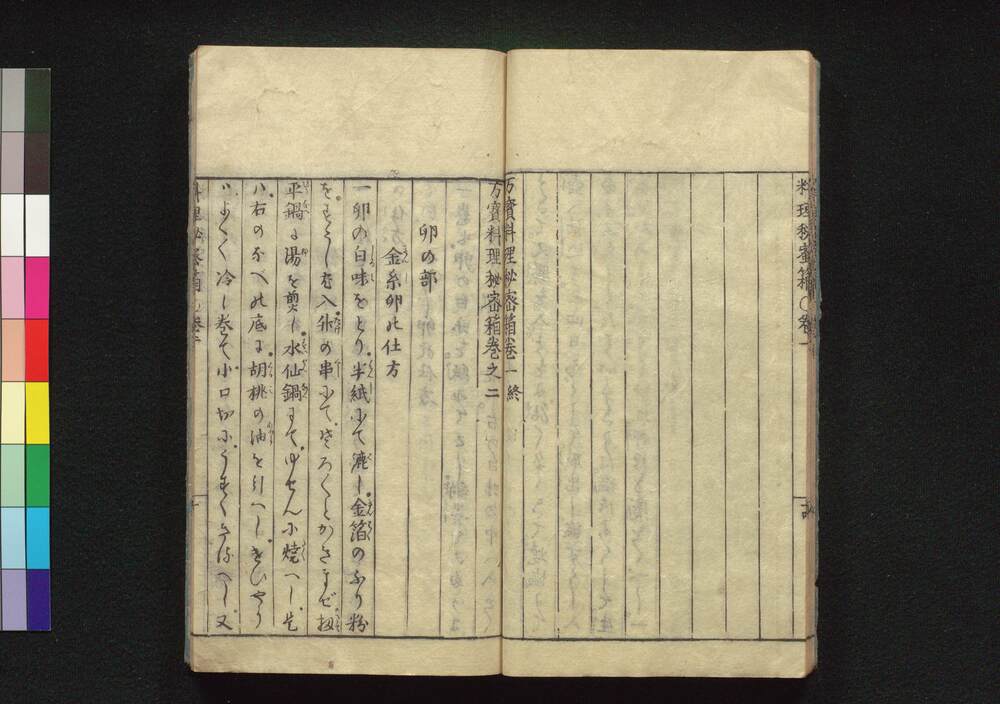 料理秘密箱〇巻一
万寳料理秘密箱巻一終
万寳料理秘密箱巻之二
卵の部
金糸卵の仕方
一卵の白味をとり半紙にて漉し金箔のふり粉
入外の串にてそろ〳〵とかきまぜ扨
平鍋に湯を煎し水仙鍋にてゆせんに焼へし尤
右のなべの底に胡桃の油を引へしきひやう
よく〳〵冷し巻て小口切にうすくきるへし又